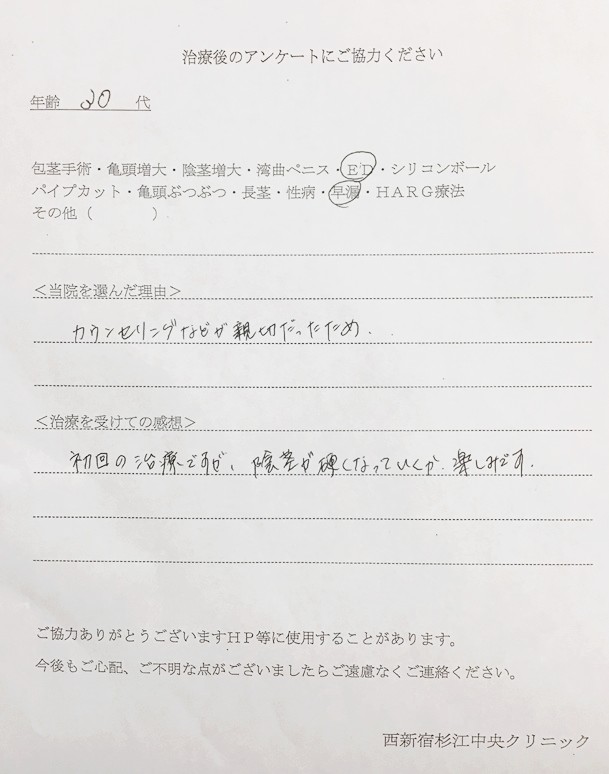 治療後のアンケートにご協力ください
年齢 30 代
包茎手術・亀頭増大・陰茎増大・湾曲ペニス・ED・シリコンボール
パイプカット・亀頭ぶつぶつ・長茎・性病・早漏・HARG療法
その他（　　　　）
＜当院を選んだ理由＞
カウンセリングなどが親切だったため.
＜治療を受けての感想＞
初回の治療ですが、陰茎が硬くなっていくか、楽しみです.
ご協力ありがとうございますHP等に使用することがあります。
今後もご心配、ご不明な点がございましたらご遠慮なくご連絡ください。
西新宿杉江中央クリニック